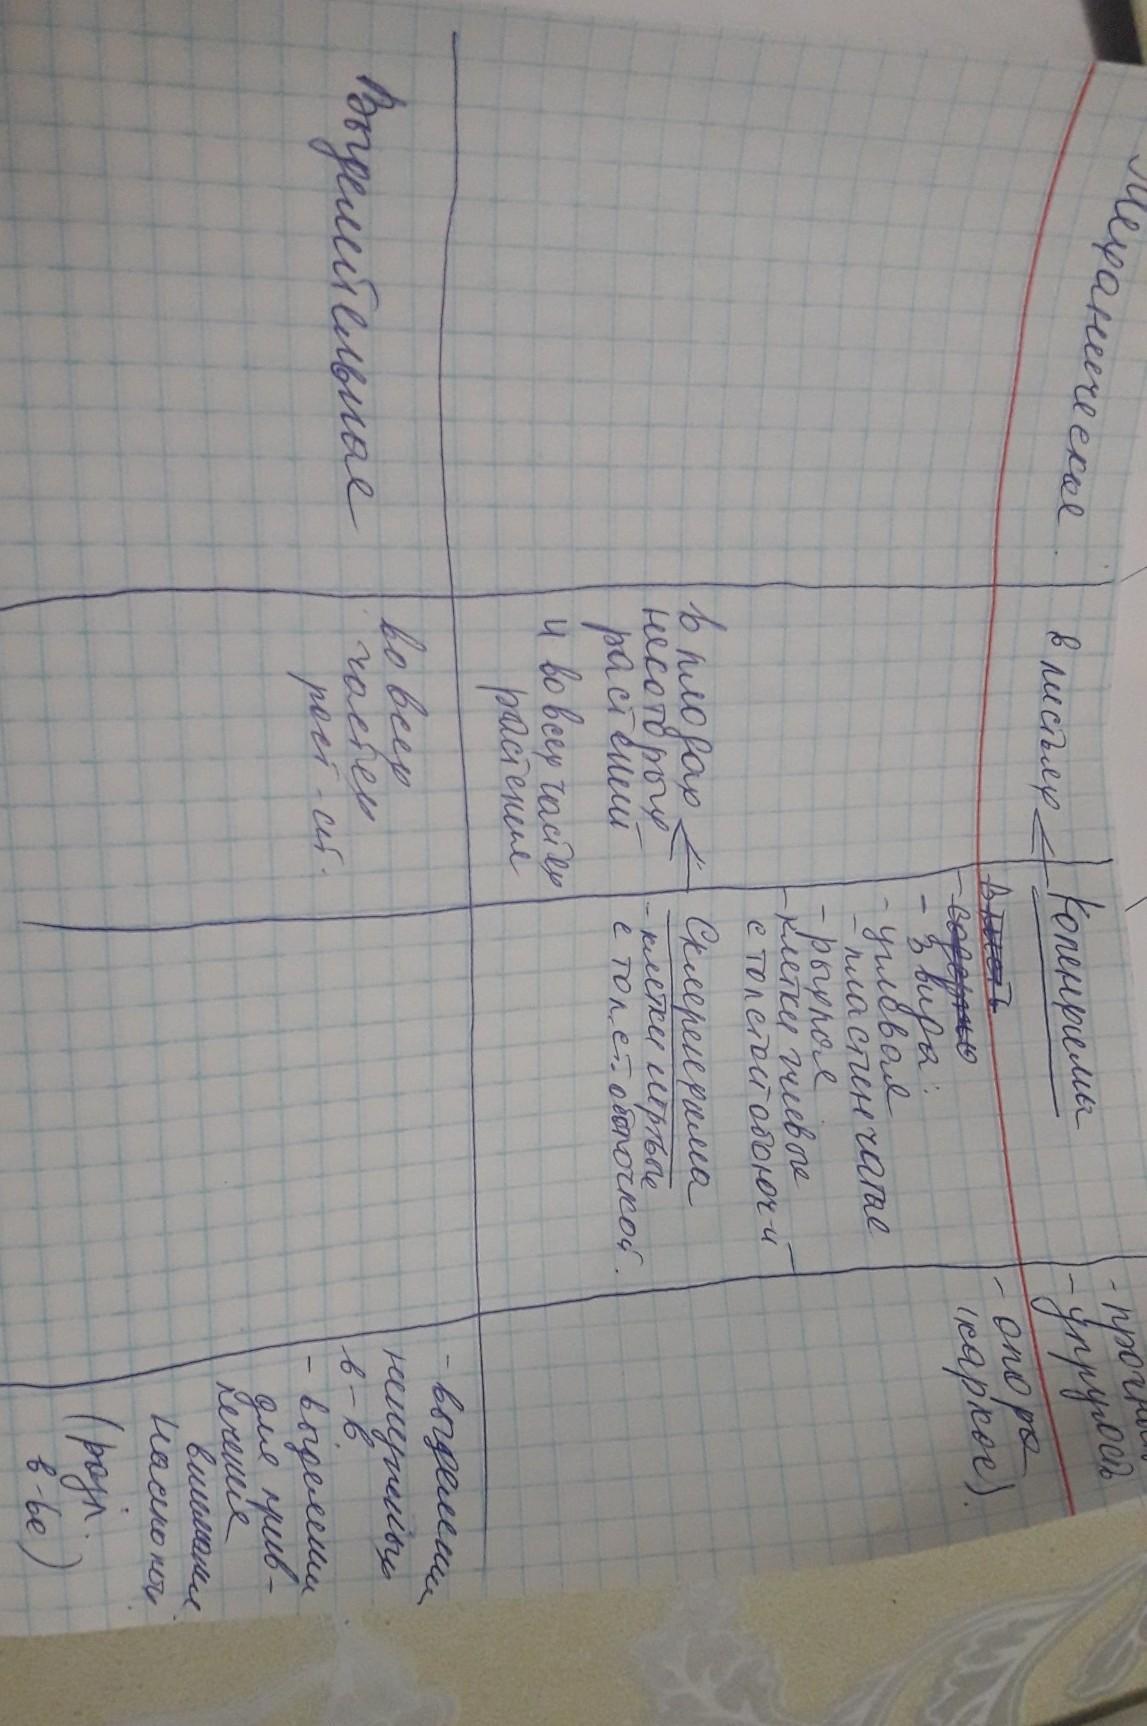 Механическая
в листьях <
Коленхима
- 3 вида:
- угловая
- пластинчатая
- рыхлая
- клетки живые
с толстой оболоч-й
- упругость
- опора
(каркас).
в плодах <
некоторых
растений
и во всех частях
растения
Склеренхима
- клетки мертвые
с толст. оболочкой.
Выделительная
во всех
частях
раст-ий.
- выделении
ненужных
в-в
- выделении
для прив-
лечения
внимания
насеком.
(разл.
в-ва)